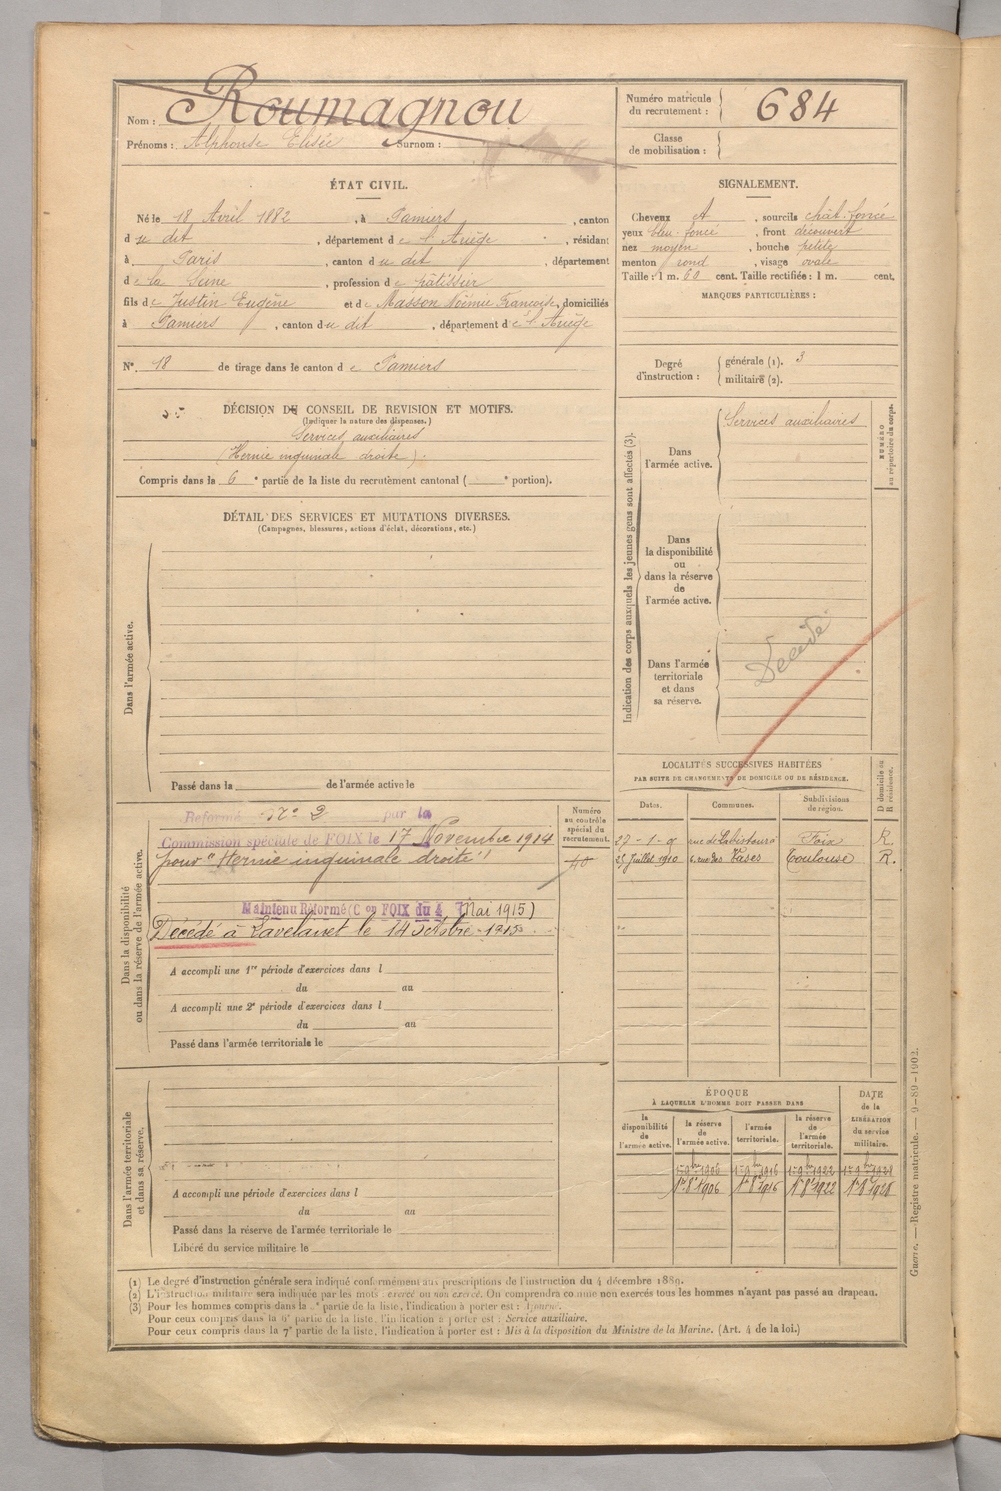 Nom : Roumagnou
Prénoms : Alphonse Elisée Surnom :
Numéro matricule du recrutement : 684
Classe de mobilisation :
ÉTAT CIVIL.
Né le 18 Avril 1882, à Pamiers, canton
du dit, département de l'Ariège, résidant
à Paris, canton du dit, département
de la Seine, profession de pâtissier
fils de Justin Eugène et de Masson Noémie Françoise, domiciliés
à Pamiers, canton du dit, département de l'Ariège
N° 18 de tirage dans le canton de Pamiers
SIGNALEMENT.
Cheveux et, sourcils chât. foncé
yeux bleu-foncé, front découvert
nez moyen, bouche petite
menton rond, visage ovale
Taille : 1 m. 60 cent. Taille rectifiée : 1 m. cent.
MARQUES PARTICULIÈRES :
Degré d'instruction : générale (1). 3
militaire (2).
DÉCISION DU CONSEIL DE REVISION ET MOTIFS.
(Indiquer la nature des dispenses.)
Services auxiliaires
(Hernie inguinale droite).
Compris dans la 6e partie de la liste du recrutement cantonal ( e portion).
DÉTAIL DES SERVICES ET MUTATIONS DIVERSES.
(Campagnes, blessures, actions d'éclat, décorations, etc.)
Dans l'armée active.
Passé dans la de l'armée active le
Indication des corps auxquels les jeunes gens sont affectés (3).
NUMÉRO au répertoire du corps.
Dans l'armée active.
Services auxiliaires
Dans la disponibilité ou dans la réserve de l'armée active.
Dans l'armée territoriale et dans sa réserve.
Décédé
Dans la disponibilité ou dans la réserve de l'armée active.
Réformé N° 2 par la
Commission spéciale de FOIX le 17 Novembre 1914
pour "Hernie inguinale droite"
Maintenu Réformé (C on FOIX du 4 Mai 1915)
Décédé à Lavelanet le 14 octobre 1915.
Numéro au contrôle spécial du recrutement.
40
A accompli une 1re période d'exercices dans l
du au
A accompli une 2e période d'exercices dans l
du au
Passé dans l'armée territoriale le
LOCALITÉS SUCCESSIVES HABITÉES
PAR SUITE DE CHANGEMENTS DE DOMICILE OU DE RÉSIDENCE.
Dates. Communes. Subdivisions de région. D domicile ou R résidence.
27-1-9 rue de Foix R.
25 Juillet 1910 6, rue des Vases Toulouse R.
Dans l'armée territoriale et dans sa réserve.
A accompli une période d'exercices dans l
du au
Passé dans la réserve de l'armée territoriale le
Libéré du service militaire le
ÉPOQUE
À LAQUELLE L'HOMME DOIT PASSER DANS
la disponibilité de l'armée active. la réserve de l'armée active. l'armée territoriale. la réserve de l'armée territoriale. DATE de la LIBÉRATION du service militaire.
1er 9bre 1906 1er 9bre 1916 1er 9bre 1922 1er 9bre 1928
1er 8e 1906 1er 8e 1916 1er 8e 1922 1er 8e 1928
(1) Le degré d'instruction générale sera indiqué conformément aux prescriptions de l'instruction du 4 décembre 1889.
(2) L'instruction militaire sera indiquée par les mots : exercé ou non exercé. On comprendra comme non exercés tous les hommes n'ayant pas passé au drapeau.
(3) Pour les hommes compris dans la 5e partie de la liste, l'indication à porter est : Ajourné.
Pour ceux compris dans la 6e partie de la liste, l'indication à porter est : Service auxiliaire.
Pour ceux compris dans la 7e partie de la liste, l'indication à porter est : Mis à la disposition du Ministre de la Marine. (Art. 4 de la loi.)
Guerre. — Registre matricule. — 9-89-1902.